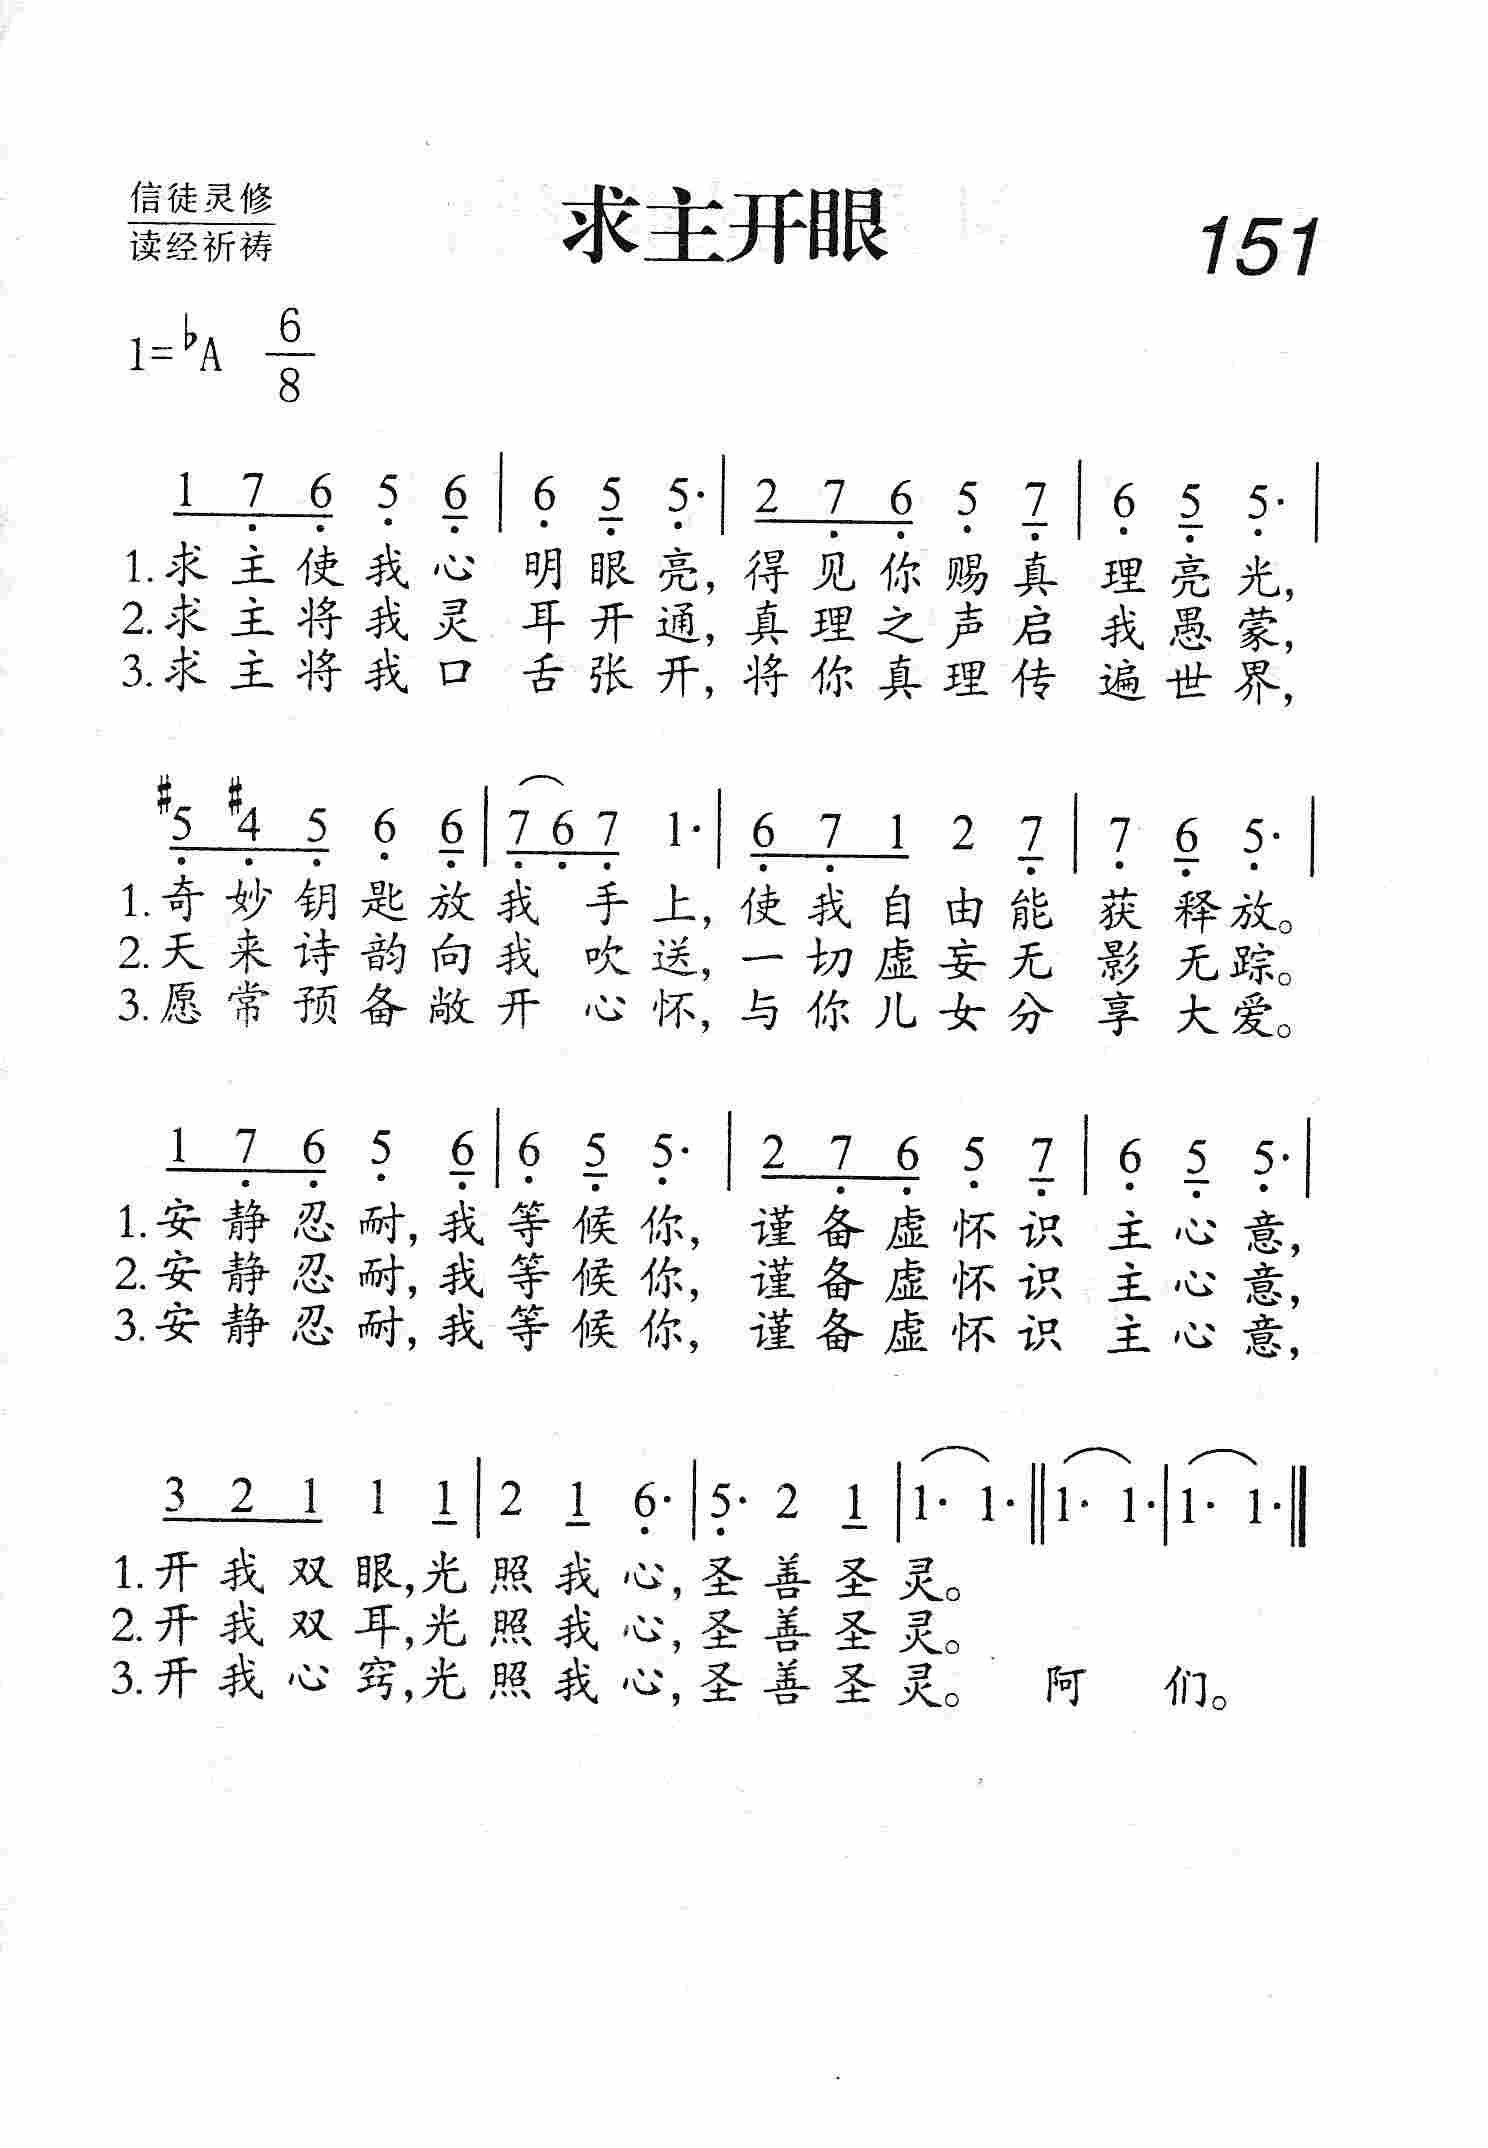 信徒灵修
读经祈祷
求主开眼
151
1=♭A 6/8
1 7 6 5 6 | 6 5 5· | 2 7 6 5 7 | 6 5 5· |
1.求主使我心 明眼亮,得见你赐真 理亮光,
2.求主将我灵 耳开通,真理之声启 我愚蒙,
3.求主将我口 舌张开,将你真理传 遍世界,
#5 #4 5 6 6 | 7 6 7 1· | 6 7 1 2 7 | 7 6 5· |
1.奇妙钥匙放我 手上,使我自由能 获释放。
2.天来诗韵向我 吹送,一切虚妄无 影无踪。
3.愿常预备敞开 心怀,与你儿女分 享大爱。
1 7 6 5 6 | 6 5 5· | 2 7 6 5 7 | 6 5 5· |
1.安静忍耐,我等候你,谨备虚怀识 主心意,
2.安静忍耐,我等候你,谨备虚怀识 主心意,
3.安静忍耐,我等候你,谨备虚怀识 主心意,
3 2 1 1 1 | 2 1 6· | 5· 2 1 | 1· 1· || 1· 1· | 1· 1· ||
1.开我双眼,光照我心,圣善圣灵。
2.开我双耳,光照我心,圣善圣灵。
3.开我心窍,光照我心,圣善圣灵。 阿 们。